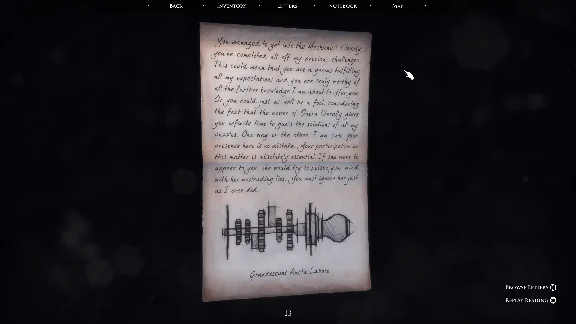 BACK
INVENTORY
LETTERS
NOTEBOOK
MAP
You managed to get into the
you've completed all of my previous challenges.
This could mean that you are a genius fulfilling
all my expectations and you are truly worthy of
all the further knowledge I am about to offer you.
Or, you could just as well be a fool, considering
the fact that the owner of literally gives
you infinite time to guess the solutions of all my
puzzles. One way or the other, I am sure your
presence here is no mistake. Your participation in
this matter is absolutely essential. If she were to
appear to you, she would try to poison your mind
with her misleading lies. You must ignore her just
as I once did.
13
BROWSE LETTERS
REPLAY READING